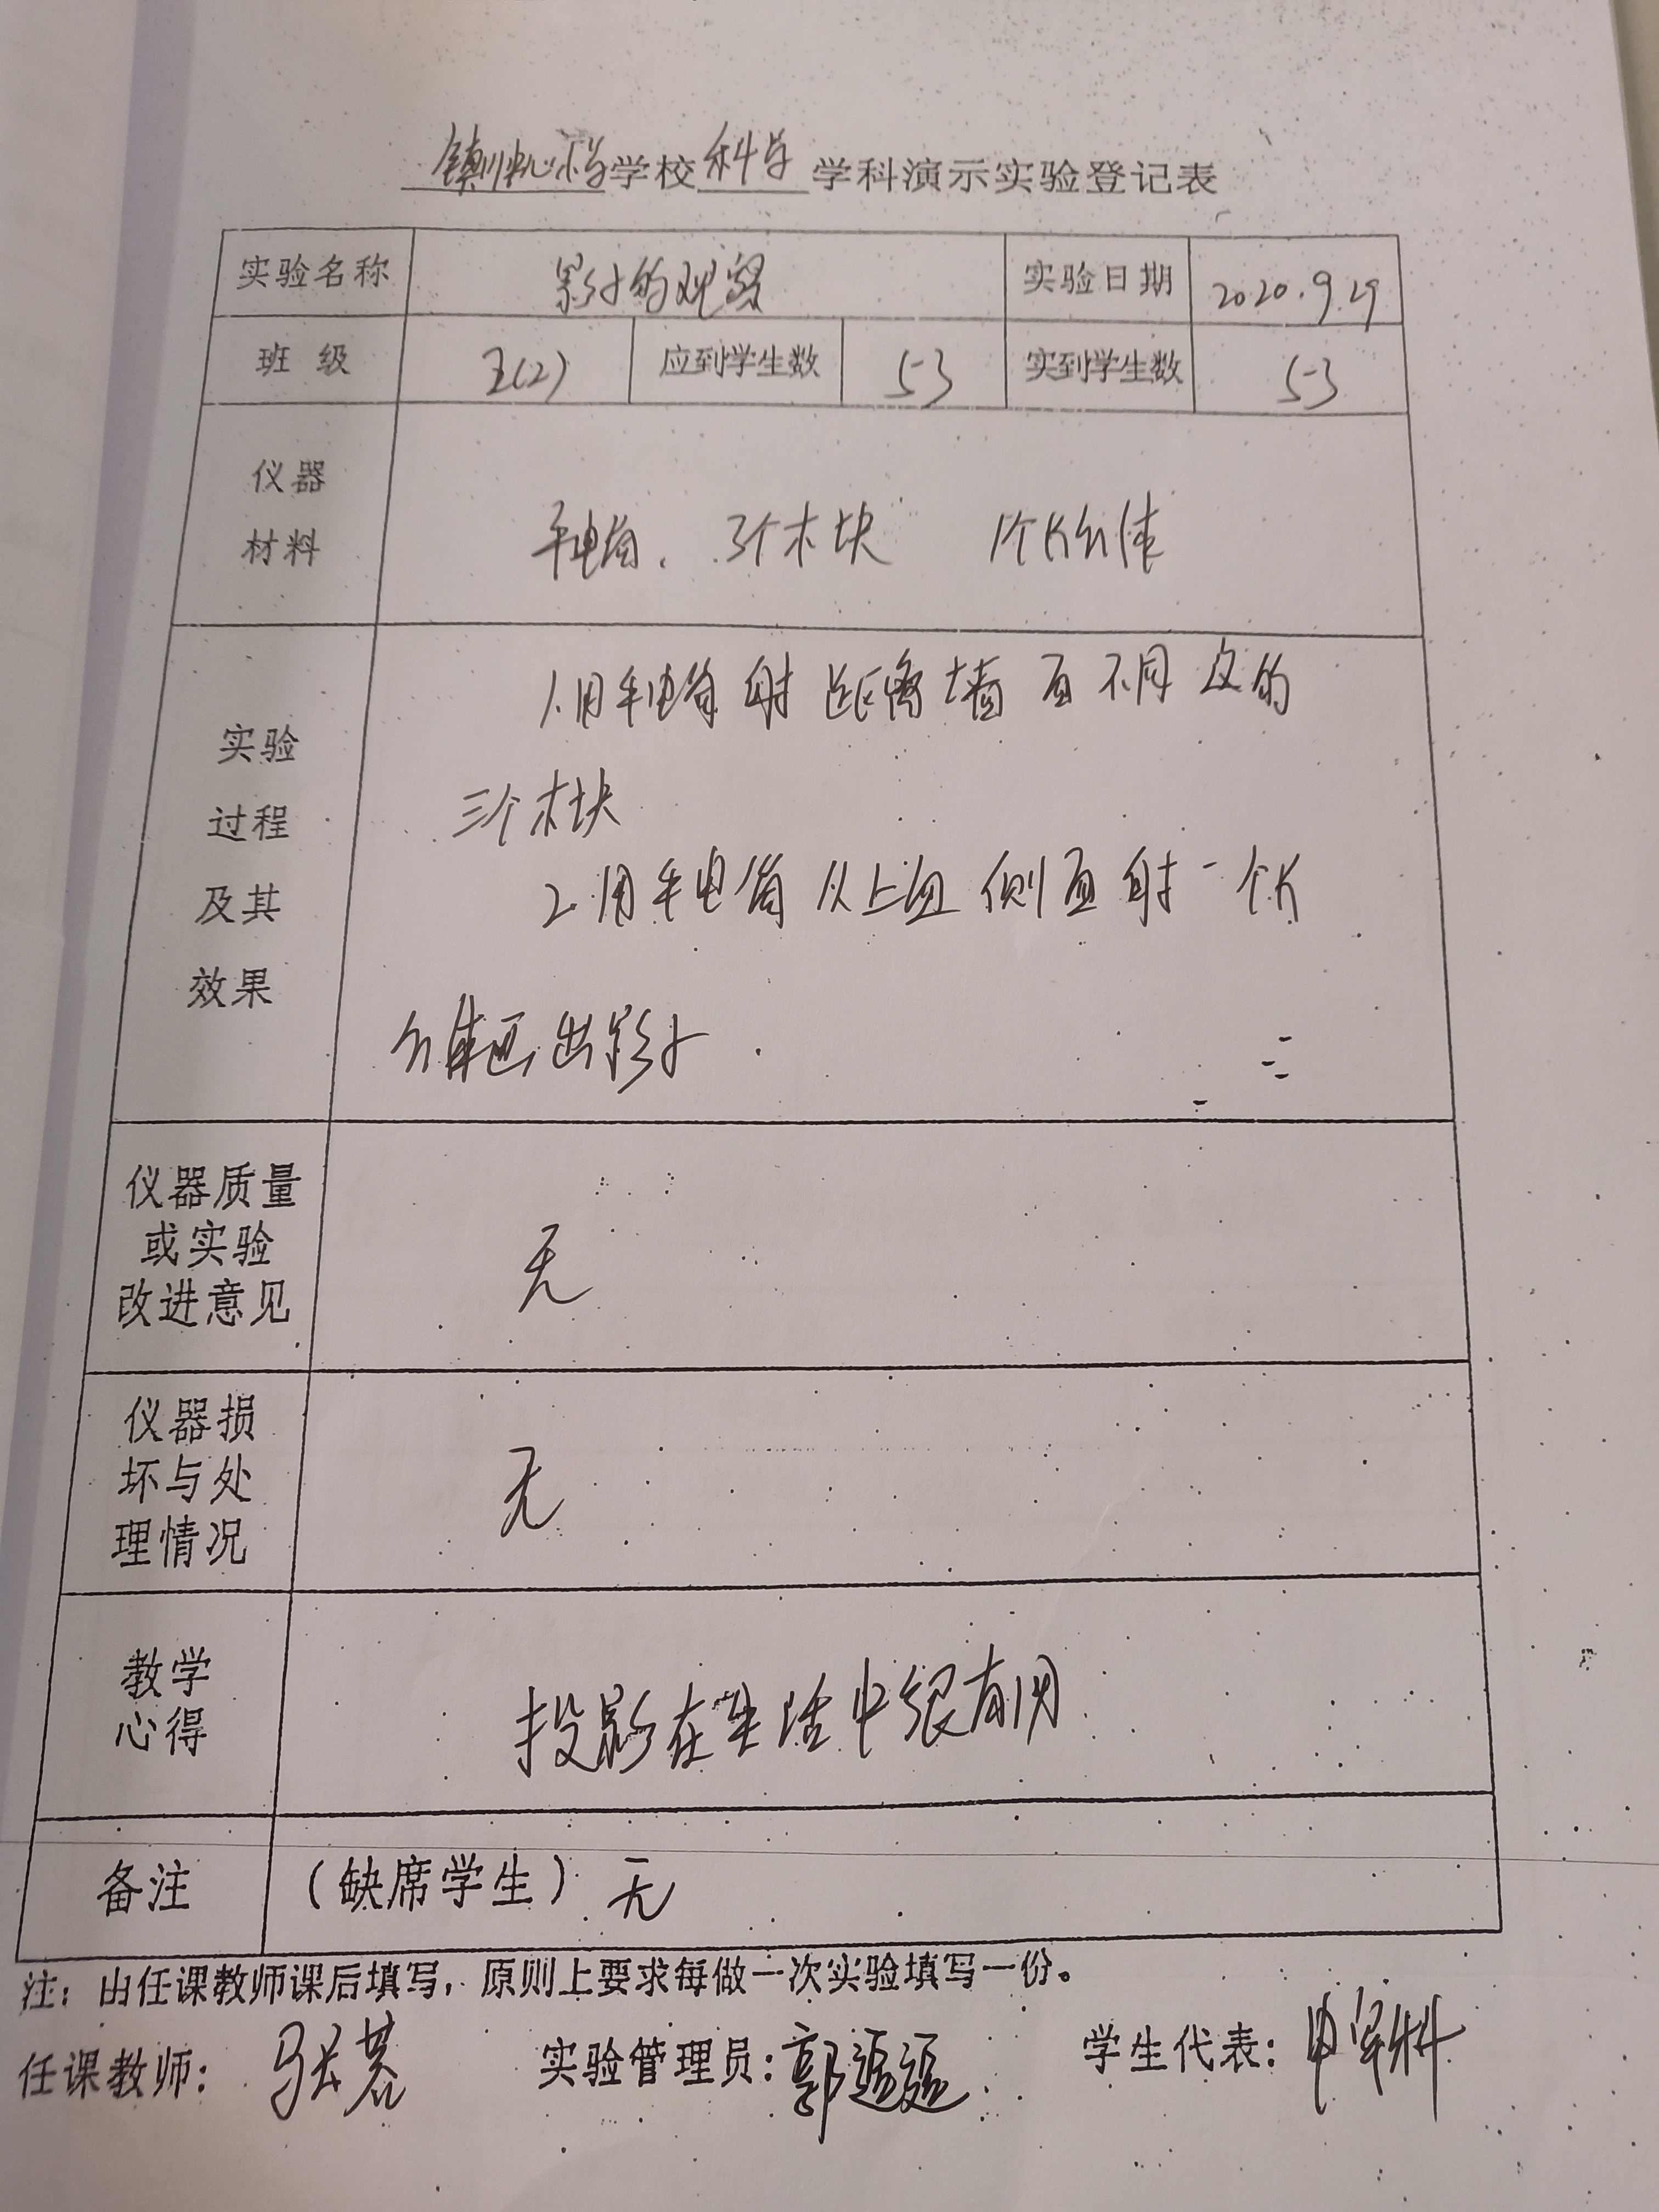 镇川中心小学学校科学学科演示实验登记表
实验名称 影子的观察 实验日期 2020.9.29
班 级 三(2) 应到学生数 53 实到学生数 53
仪器
材料
手电筒、3个木块 1个长方体
实验
过程
及其
效果
1.用手电筒射距离墙面不同之的
三个木块
2.用手电筒从上面侧面射一个长
方体画出影子.
仪器质量
或实验
改进意见
无
仪器损
坏与处
理情况
无
教学
心得
投影在生活中很有用
备注 (缺席学生) 无
注：由任课教师课后填写，原则上要求每做一次实验填写一份。
任课教师： 实验管理员：郭 学生代表：